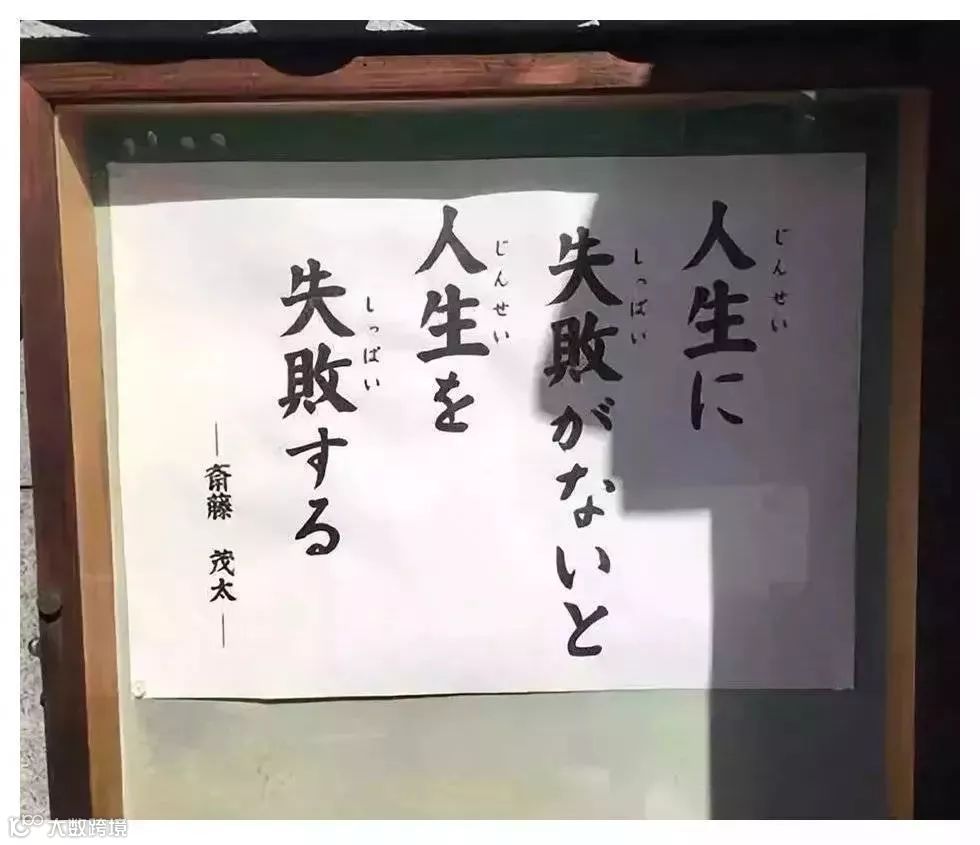 人生に
じんせい
失敗がないと
しっぱい
人生を
じんせい
失敗する
しっぱい
—斎藤 茂太—
大数跨境